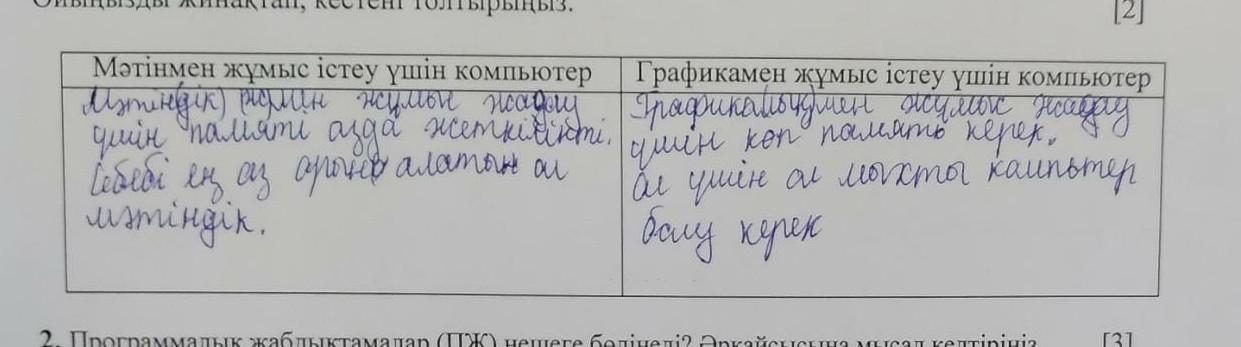 Ойыңызды жинақтап, кестені толтырыңыз.
[2]
Мәтінмен жұмыс істеу үшін компьютер
Мәтіндік) жұмыс жасау
үшін памяті азда жеткілікті.
Себебі ең аз орын алатын ол
мәтіндік.
Графикамен жұмыс істеу үшін компьютер
жұмыс жасау
үшін көп память керек.
ол үшін ол мықты кампьтер
болу керек
2. Программалық жабдықтамалар (ПЖ) нешеге бөлінеді? Әрқайсысына мысал келтіріңіз. [3]